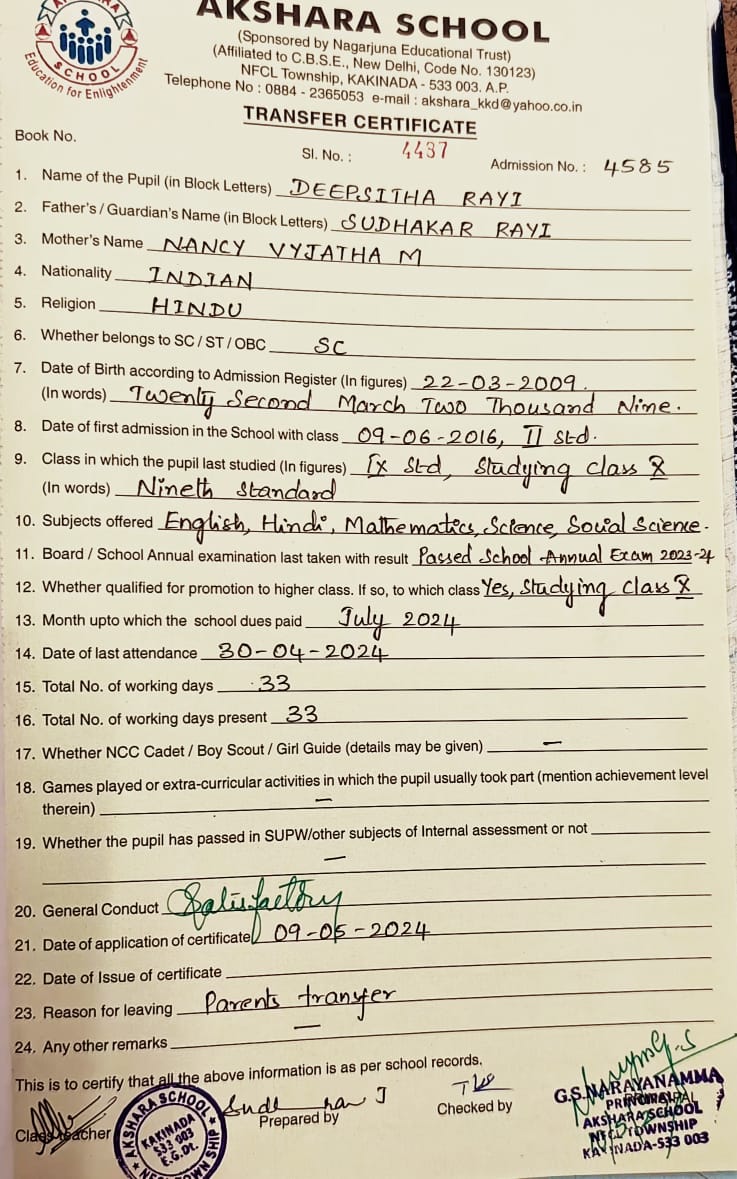 AKSHARA SCHOOL
(Sponsored by Nagarjuna Educational Trust)
(Affiliated to C.B.S.E., New Delhi, Code No. 130123)
NFCL Township, KAKINADA - 533 003. A.P.
Telephone No : 0884 - 2365053 e-mail : akshara_kkd@yahoo.co.in
SCHOOL
Education for Enlightenment
TRANSFER CERTIFICATE
Book No.
Sl. No. : 4437
Admission No. : 4585
1. Name of the Pupil (in Block Letters) DEEPSITHA RAYI
2. Father's / Guardian's Name (in Block Letters) SUDHAKAR RAYI
3. Mother's Name NANCY VYJATHA M
4. Nationality INDIAN
5. Religion HINDU
6. Whether belongs to SC / ST / OBC SC
7. Date of Birth according to Admission Register (In figures) 22-03-2009.
(In words) Twenty Second March Two Thousand Nine.
8. Date of first admission in the School with class 09-06-2016, II Std.
9. Class in which the pupil last studied (In figures) IX Std, Studying class X
(In words) Nineth Standard
10. Subjects offered English, Hindi, Mathematics, Science, Social Science.
11. Board / School Annual examination last taken with result Passed School Annual Exam 2023-24
12. Whether qualified for promotion to higher class. If so, to which class Yes, Studying class X
13. Month upto which the school dues paid July 2024
14. Date of last attendance 30-04-2024
15. Total No. of working days 33
16. Total No. of working days present 33
17. Whether NCC Cadet / Boy Scout / Girl Guide (details may be given) —
18. Games played or extra-curricular activities in which the pupil usually took part (mention achievement level
therein) —
19. Whether the pupil has passed in SUPW/other subjects of Internal assessment or not
—
20. General Conduct Satisfactory
21. Date of application of certificate 09-05-2024
22. Date of Issue of certificate
23. Reason for leaving Parents transfer
24. Any other remarks —
This is to certify that all the above information is as per school records.
Class teacher
AKSHARA SCHOOL
KAKINADA
533 003
E.G.Dt.
Prepared by
Checked by
G.S.NARAYANAMMA
PRINCIPAL
AKSHARA SCHOOL
NFCL TOWNSHIP
KAKINADA-533 003